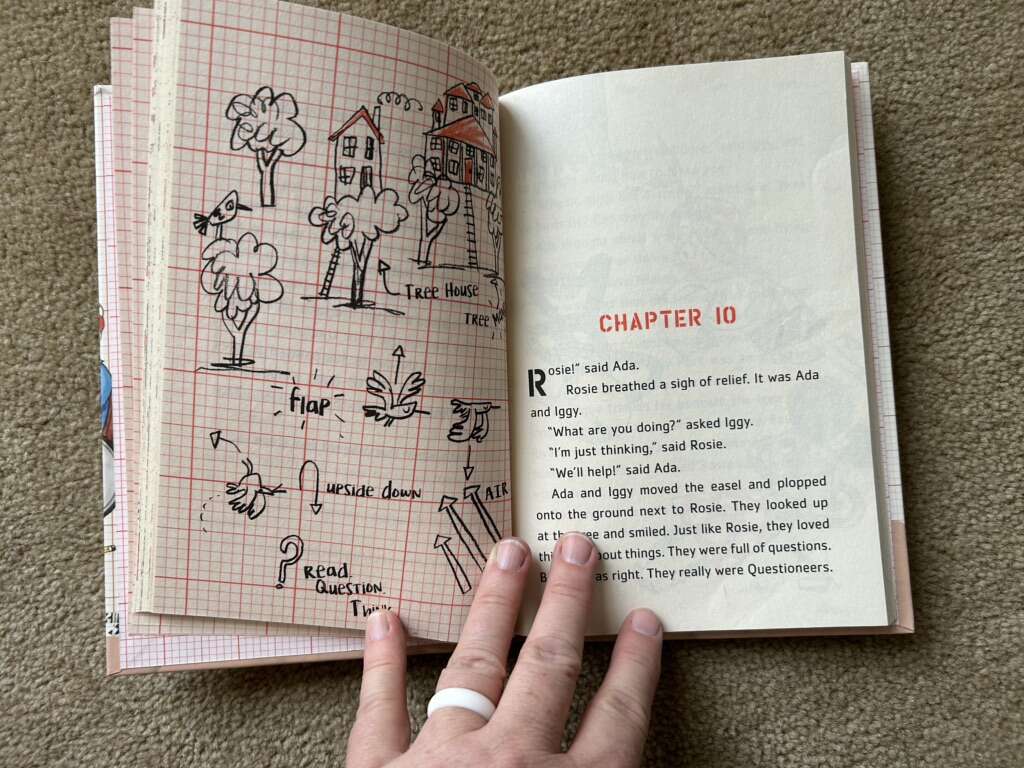 TREE HOUSE
TREE
flap
UPSIDE DOWN
AIR
?
READ.
QUESTION.
Think
CHAPTER 10
Rosie!” said Ada.
Rosie breathed a sigh of relief. It was Ada
and Iggy.
“What are you doing?” asked Iggy.
“I’m just thinking,” said Rosie.
“We’ll help!” said Ada.
Ada and Iggy moved the easel and plopped
onto the ground next to Rosie. They looked up
at the tree and smiled. Just like Rosie, they loved
about things. They were full of questions.
was right. They really were Questioneers.